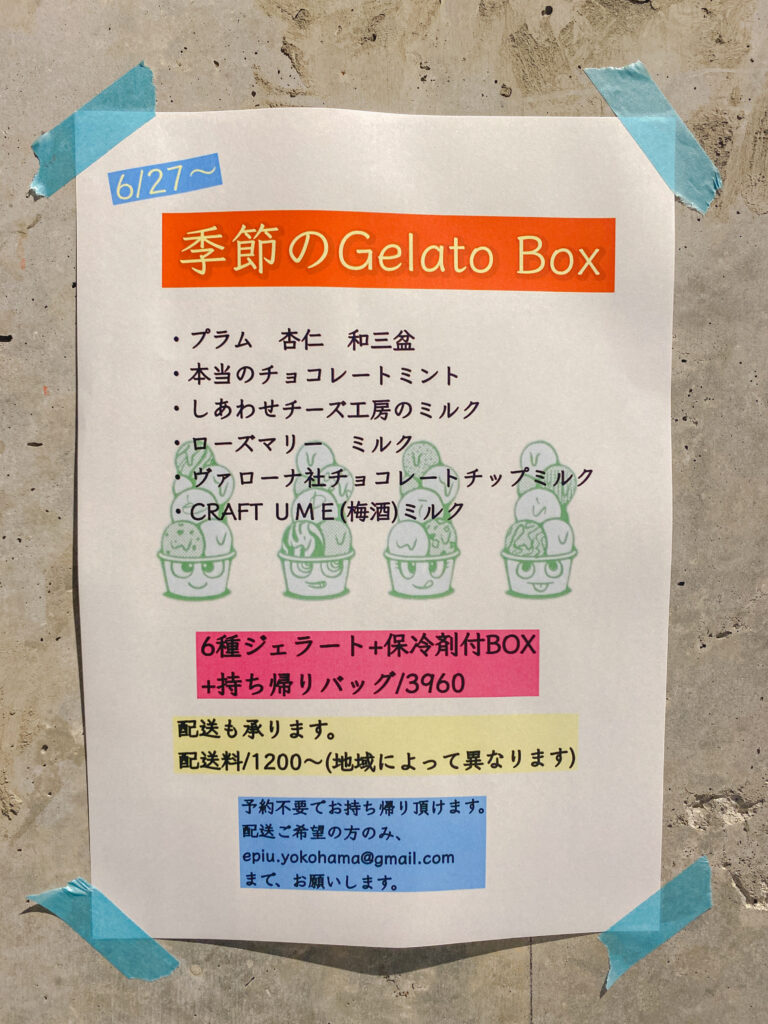 6/27～
季節のGelato Box
・プラム　杏仁　和三盆
・本当のチョコレートミント
・しあわせチーズ工房のミルク
・ローズマリー　ミルク
・ヴァローナ社チョコレートチップミルク
・CRAFT ＵＭＥ(梅酒)ミルク
6種ジェラート+保冷剤付BOX
+持ち帰りバッグ/3960
配送も承ります。
配送料/1200〜(地域によって異なります)
予約不要でお持ち帰り頂けます。
配送ご希望の方のみ、
epiu.yokohama@gmail.com
まで、お願いします。